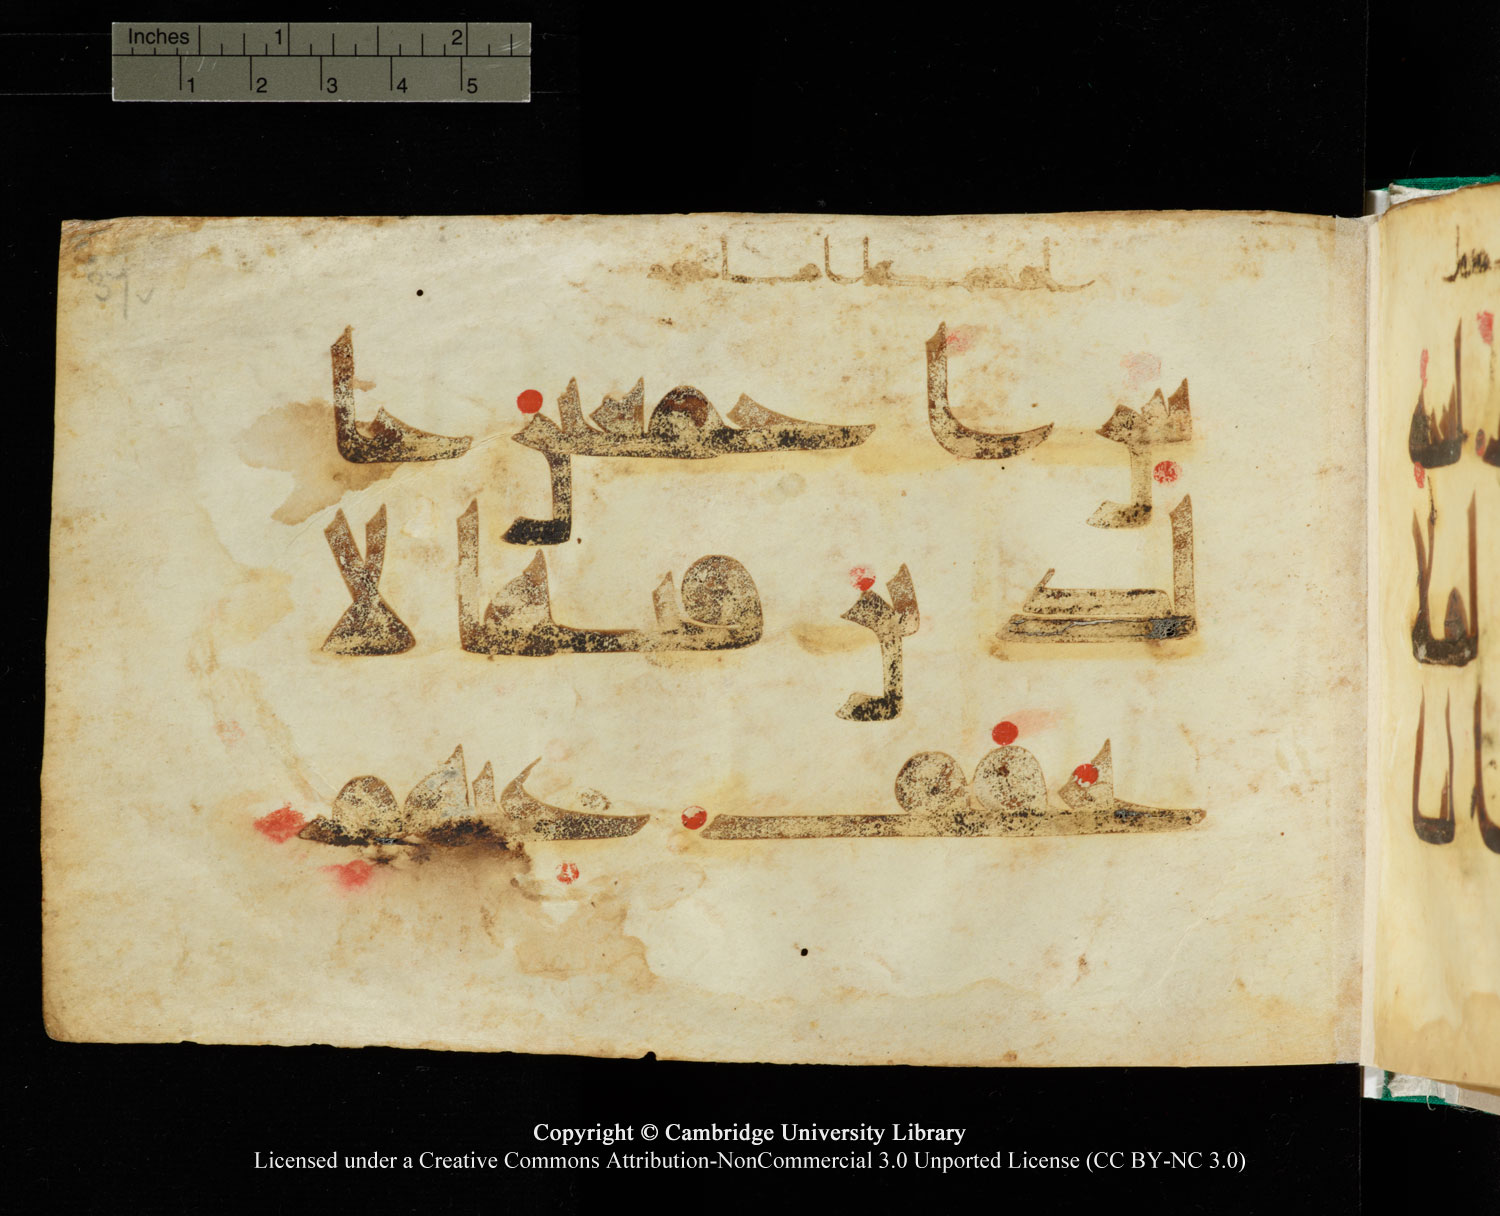 Inches 1 2
1 2 3 4 5
س اجمعين خا
لدين فيها لا
يخفف عنهم
Copyright © Cambridge University Library
Licensed under a Creative Commons Attribution-NonCommercial 3.0 Unported License (CC BY-NC 3.0)